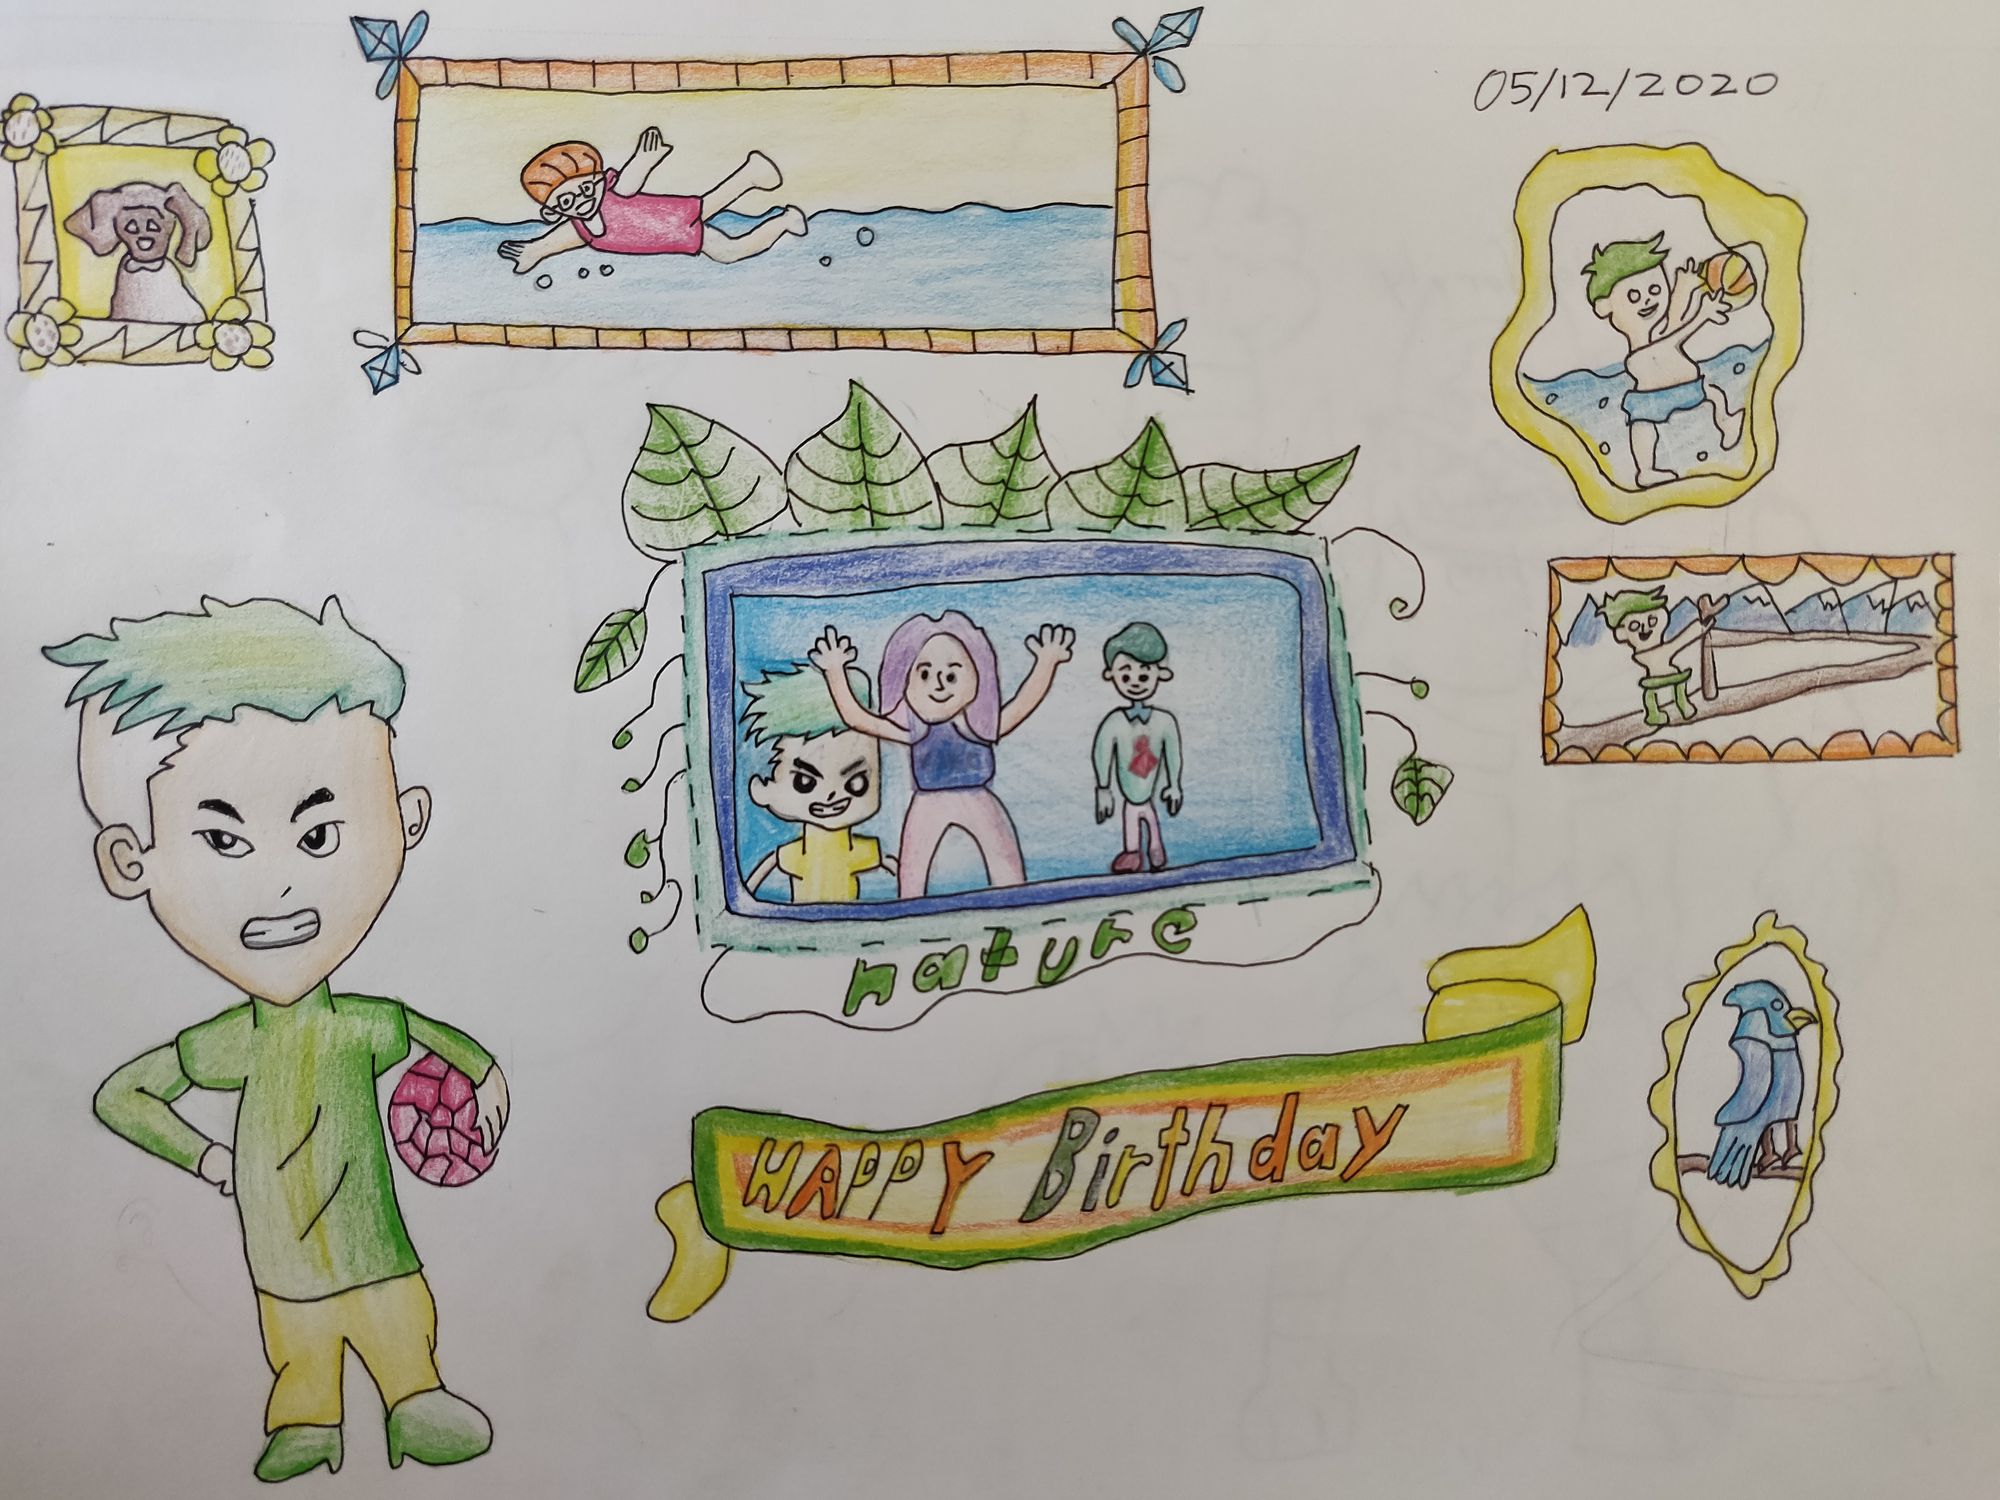 05/12/2020
nature
HAPPY Birthday